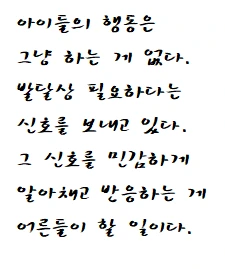 아이들의 행동은
그냥 하는 게 없다.
발달상 필요하다는
신호를 보내고 있다.
그 신호를 민감하게
알아채고 반응하는 게
어른들이 할 일이다.